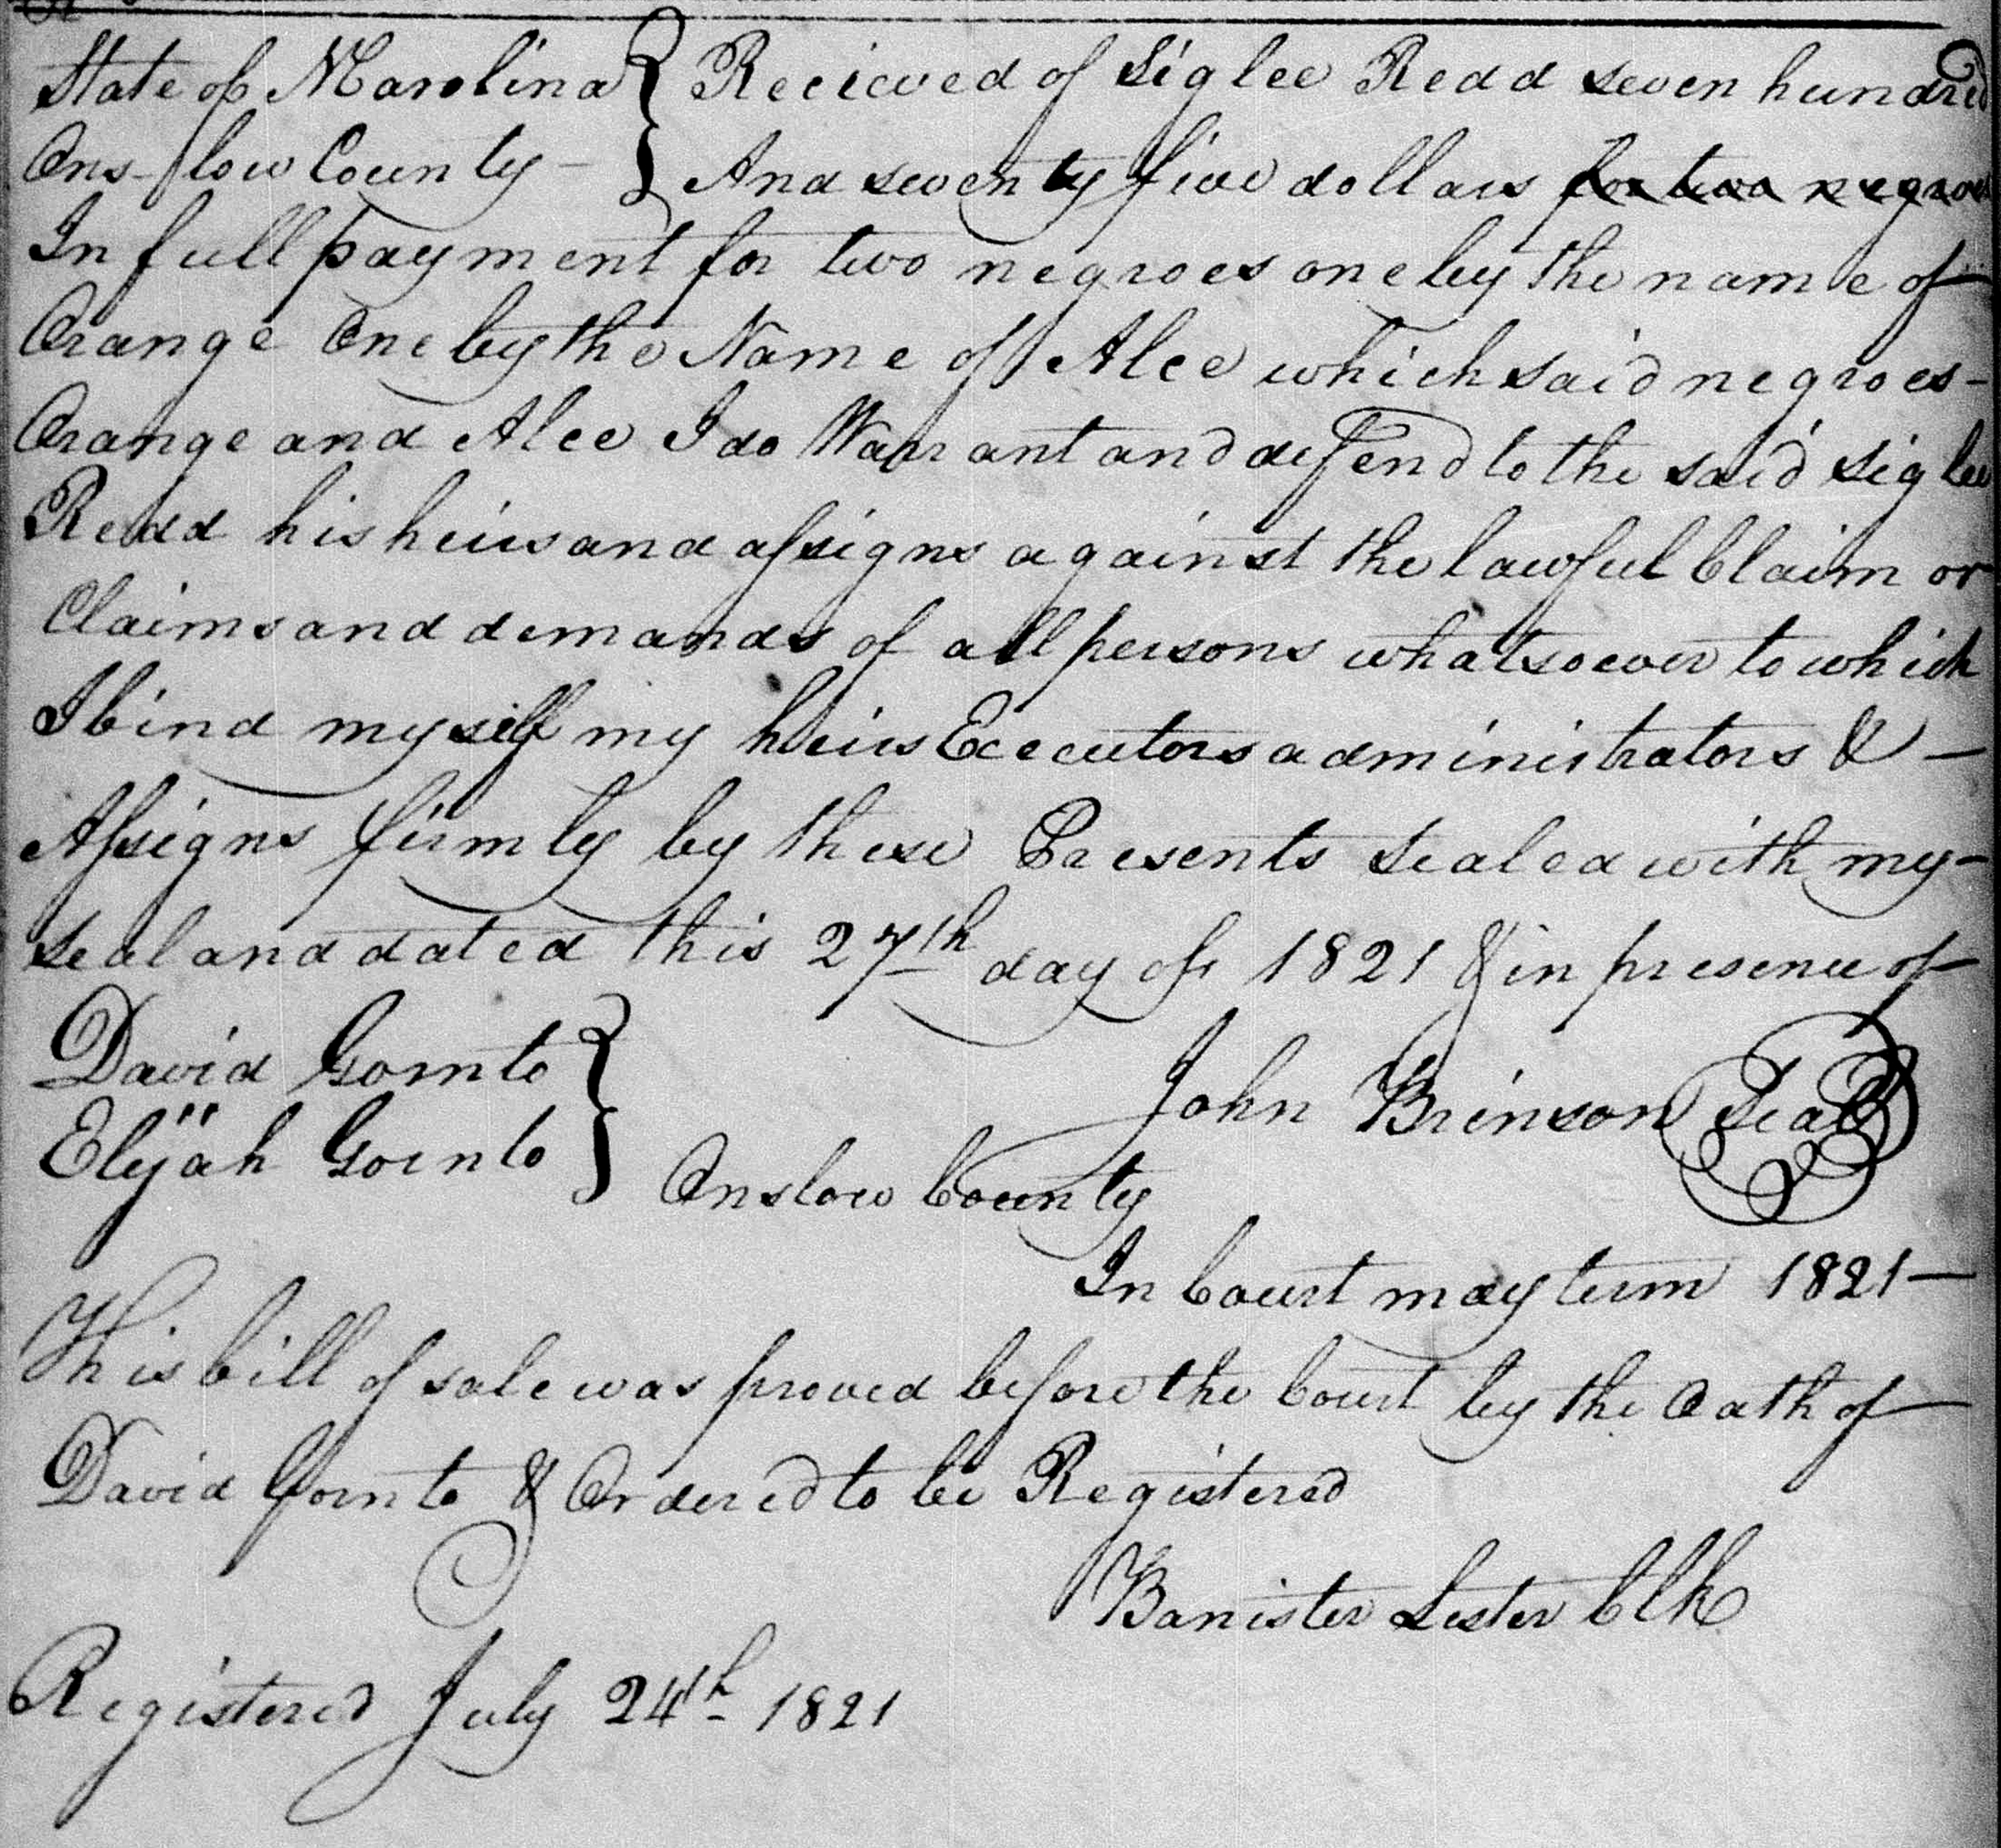 State of N Carolina } Recieved of Siglee Redd seven hundred
Ons-low County - } And seventy five dollars for two negroes
In full payment for two negroes one by the name of
Orange One by the Name of Alee which said negroes -
Orange and Alee I do Warrant and defend to the said Siglee
Redd his heirs and assigns against the lawful Claim or
Claims and demands of all persons whatsoever to which
I bind myself my heirs Executors administrators & -
Assigns firmly by these Presents Sealed with my -
Seal and dated this 27th day of 1821 & in presence of
David Gornto }
John Brinson Seal
Elijah Gornto }
Onslow County
In Court may term 1821 -
This bill of sale was proved before the Court by the Oath of
David Gornto & Ordered to be Registered
Banister Lester Clk
Registered July 24th 1821